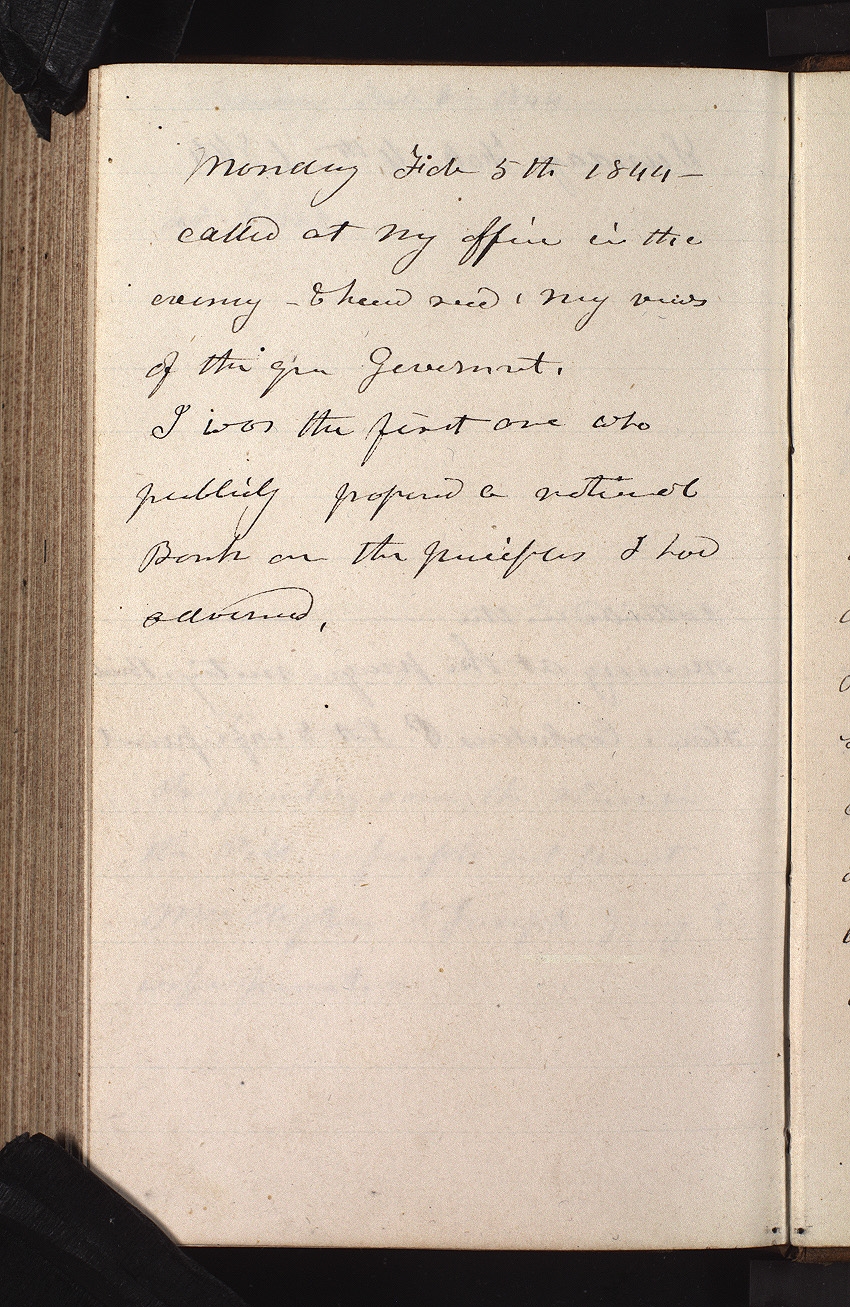 Monday Feb 5th 1844 –
called at my office in the
evening – & heard read my views
of the gen Government.
I was the first one who
publicly proposed a national
Bank on the principles I had
advanced.